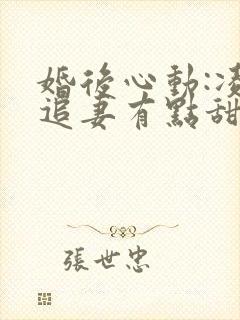 婚後心動:凌
追妻有點甜
張世忠